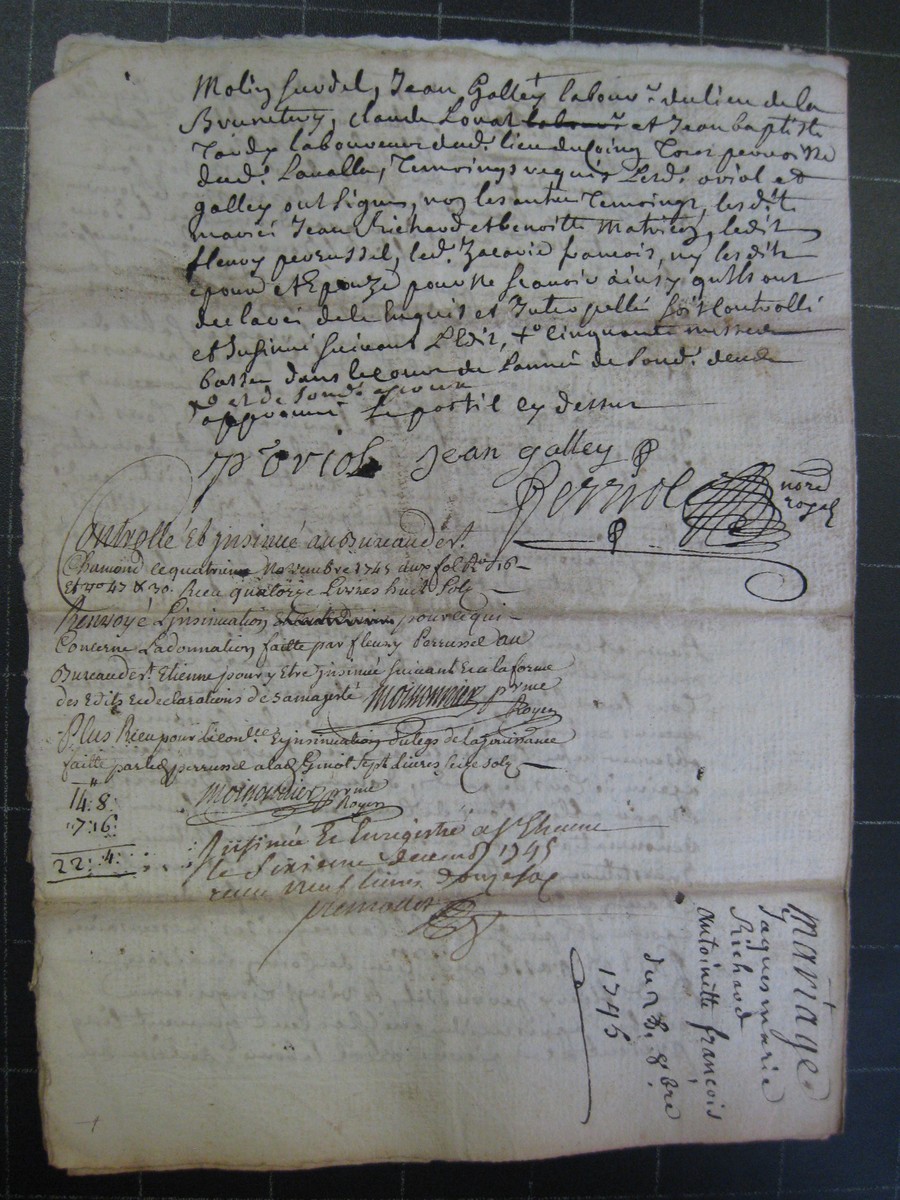 Jean Galley labour.r du lieu de la
claude Lovat labour.r et Jean baptiste
Tardy laboureur dud. lieu du Coing
dud. Lavalla, Temoings requis Lesd. oriol et
galley ont signés, non les autres Temoings, les d.ts
mariés Jean Richard et benoitte Mathieu, ledit
fleury perrussel, led. Zacarie francois, ny lesdits
epoux et Epouze pour ne scavoir ainsy quils ont
declarés de ce Enquis et Interpellé soit Controllé
et Insinué suivant L'Edit, cinquante messes
basses dans le cours de l'année de son d. deces
et de son d. epoux
approuvé le postil cy dessus
P oriol Jean galley
Perriol no.re royal
Controllé Et jnsinué au Bureau de s.t
Chamond le quatrieme Novembre 1745 aux fol.
et 47 & 30. Receu quatorze Livres huit sols
Renvoyé L'jnsinuation pour ce qui
Concerne La donnation faitte par fleury Perrussel au
Bureau de s.t Etienne pour y etre jnsinué suivant Et a la forme
des Edits Et declarations de sa majesté
Plus Receu pour le Con.lle Et jnsinuation du legs de la Jouissance
faitte par led. perrussel a lad. Ginot sept livres seize sols
14.# 8.
7: 16:
22: 4:
Insinué Et Enregistré a S.t Etienne
le sixieme decemb. 1745
receu neuf livres douze sols
mariage
Jaques marie
Richard
antoinette françois
du 8.bre
1745